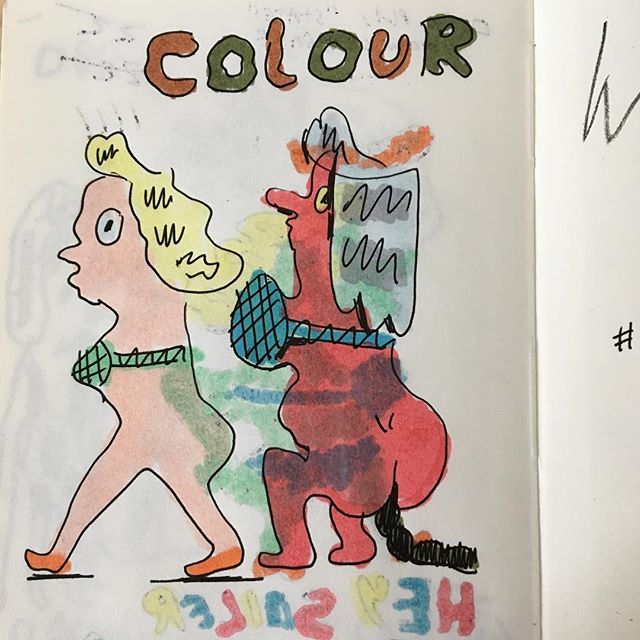 COLOUR
HEY SAILER
#